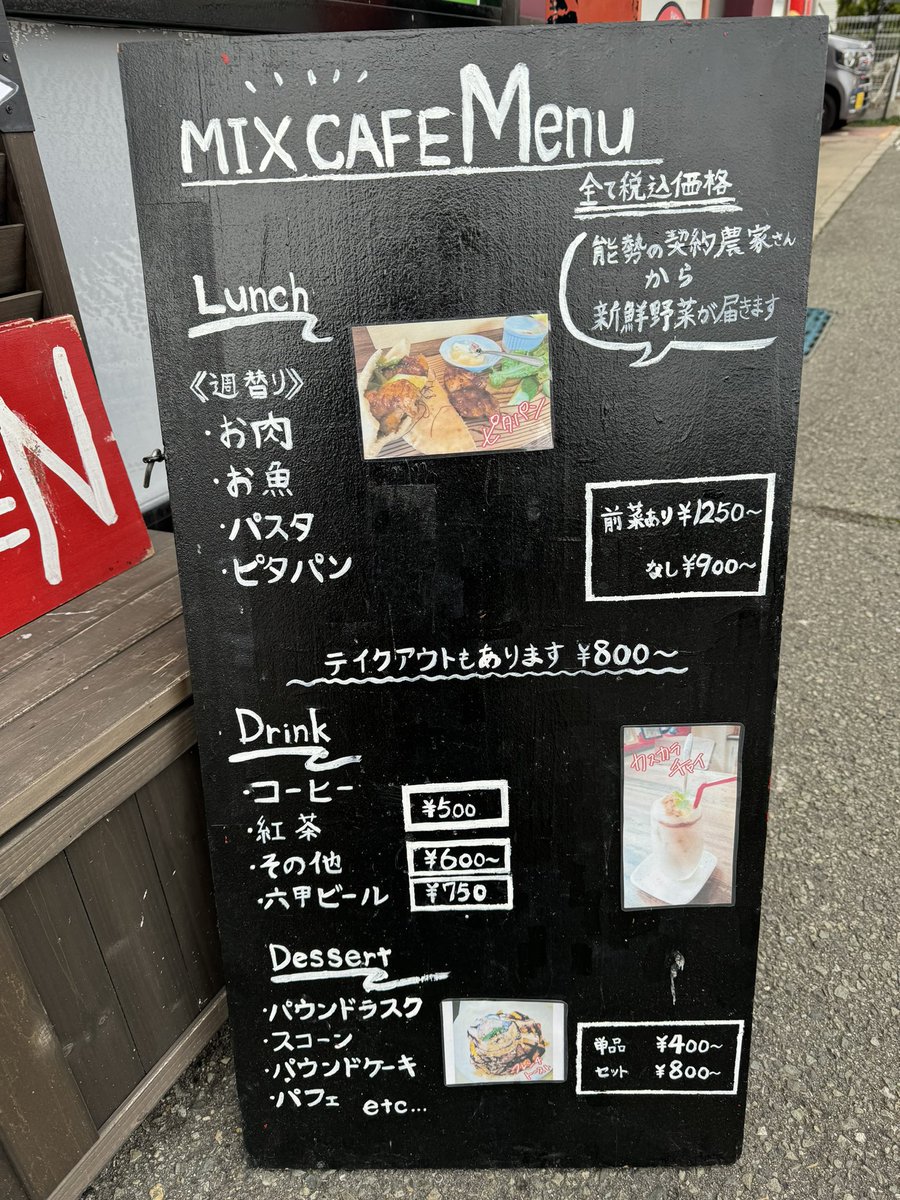 MIX CAFE Menu
全て税込価格
能勢の契約農家さん
から
新鮮野菜が届きます
Lunch
《週替り》
・お肉
・お魚
・パスタ
・ピタパン
ピタパン
前菜あり ¥1250~
なし ¥900~
テイクアウトもあります ¥800~
Drink
・コーヒー
・紅茶
¥500
・その他
¥600~
・六甲ビール
¥750
カスカラ
チャイ
Dessert
・パウンドラスク
・スコーン
・パウンドケーキ
・パフェ etc...
フレンチ
トースト
単品 ¥400~
セット ¥800~
EN